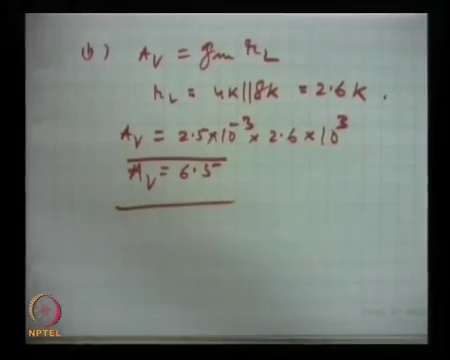 (b) Av = gm rL
rL = 4K||8K = 2.6 K.
Av = 2.5×10⁻³ × 2.6 × 10³
Av = 6.5
NPTEL